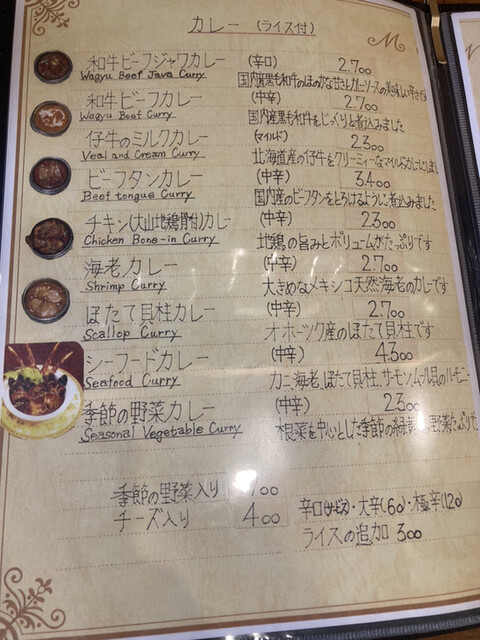 カレー (ライス付)
M
和牛ビーフジャワカレー (辛口) 2.700
Wagyu Beef Java Curry
国内産黒毛和牛のほのかな甘さとカレーソースの美味しい辛さです
和牛ビーフカレー (中辛) 2.700
Wagyu Beef Curry
国内産黒毛和牛をじっくりと煮込みました
仔牛のミルクカレー (マイルド) 2.300
Veal and Cream Curry
北海道産の仔牛をクリーミィーなマイルドカレーにしました
ビーフタンカレー (中辛) 3.400
Beef tongue Curry
国内産のビーフタンをとろけるように煮込みました
チキン(大山地鶏骨付)カレー (中辛) 2.300
Chicken Bone-in Curry
地鶏の旨みとボリュームがたっぷりです
海老カレー (中辛) 2.700
Shrimp Curry
大きめなメキシコ天然海老のカレーです
ほたて貝柱カレー (中辛) 2.700
Scallop Curry
オホーツク産のほたて貝柱です
シーフードカレー (中辛) 4.300
Seafood Curry
カニ、海老、ほたて貝柱、サーモン、ムール貝のハーモニー
季節の野菜カレー (中辛) 2.300
Seasonal Vegetable Curry
根菜を中心とした季節の緑黄野菜たっぷり
季節の野菜入り 00
チーズ入り 400
辛口(サービス)・大辛(.60)・極辛(120)
ライスの追加 300